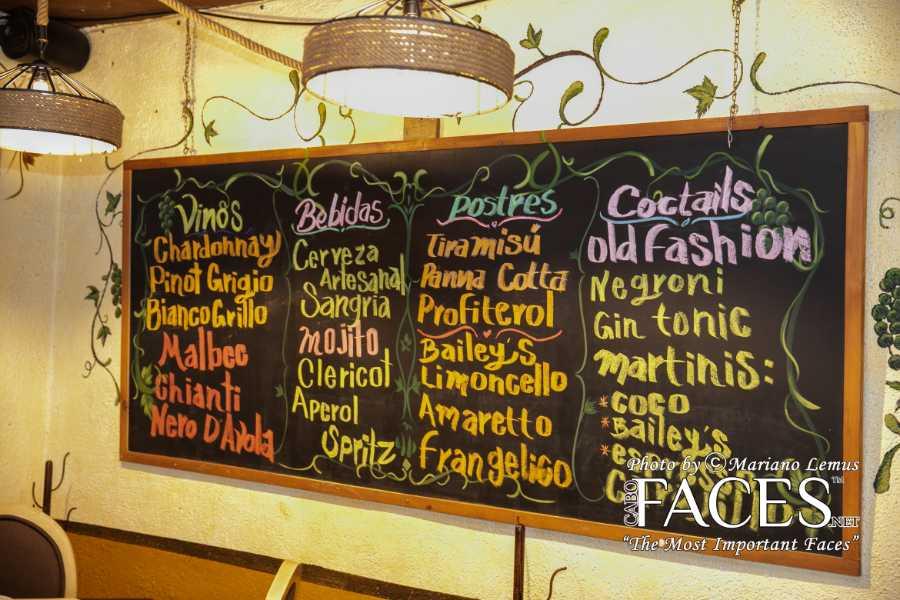 Vinos
Chardonnay
Pinot Grigio
Bianco Grillo
Malbec
Chianti
Nero D'Avola
Bebidas
Cerveza
Artesanal
Sangria
Mojito
Clericot
Aperol
Spritz
Postres
Tiramisú
Panna Cotta
Profiterol
Bailey's
Limoncello
Amaretto
Frangelico
Coctails
Old Fashion
Negroni
Gin tonic
Martinis:
*coco
*Bailey's
Photo by © Mariano Lemus
CABO FACES™.NET
"The Most Important Faces"